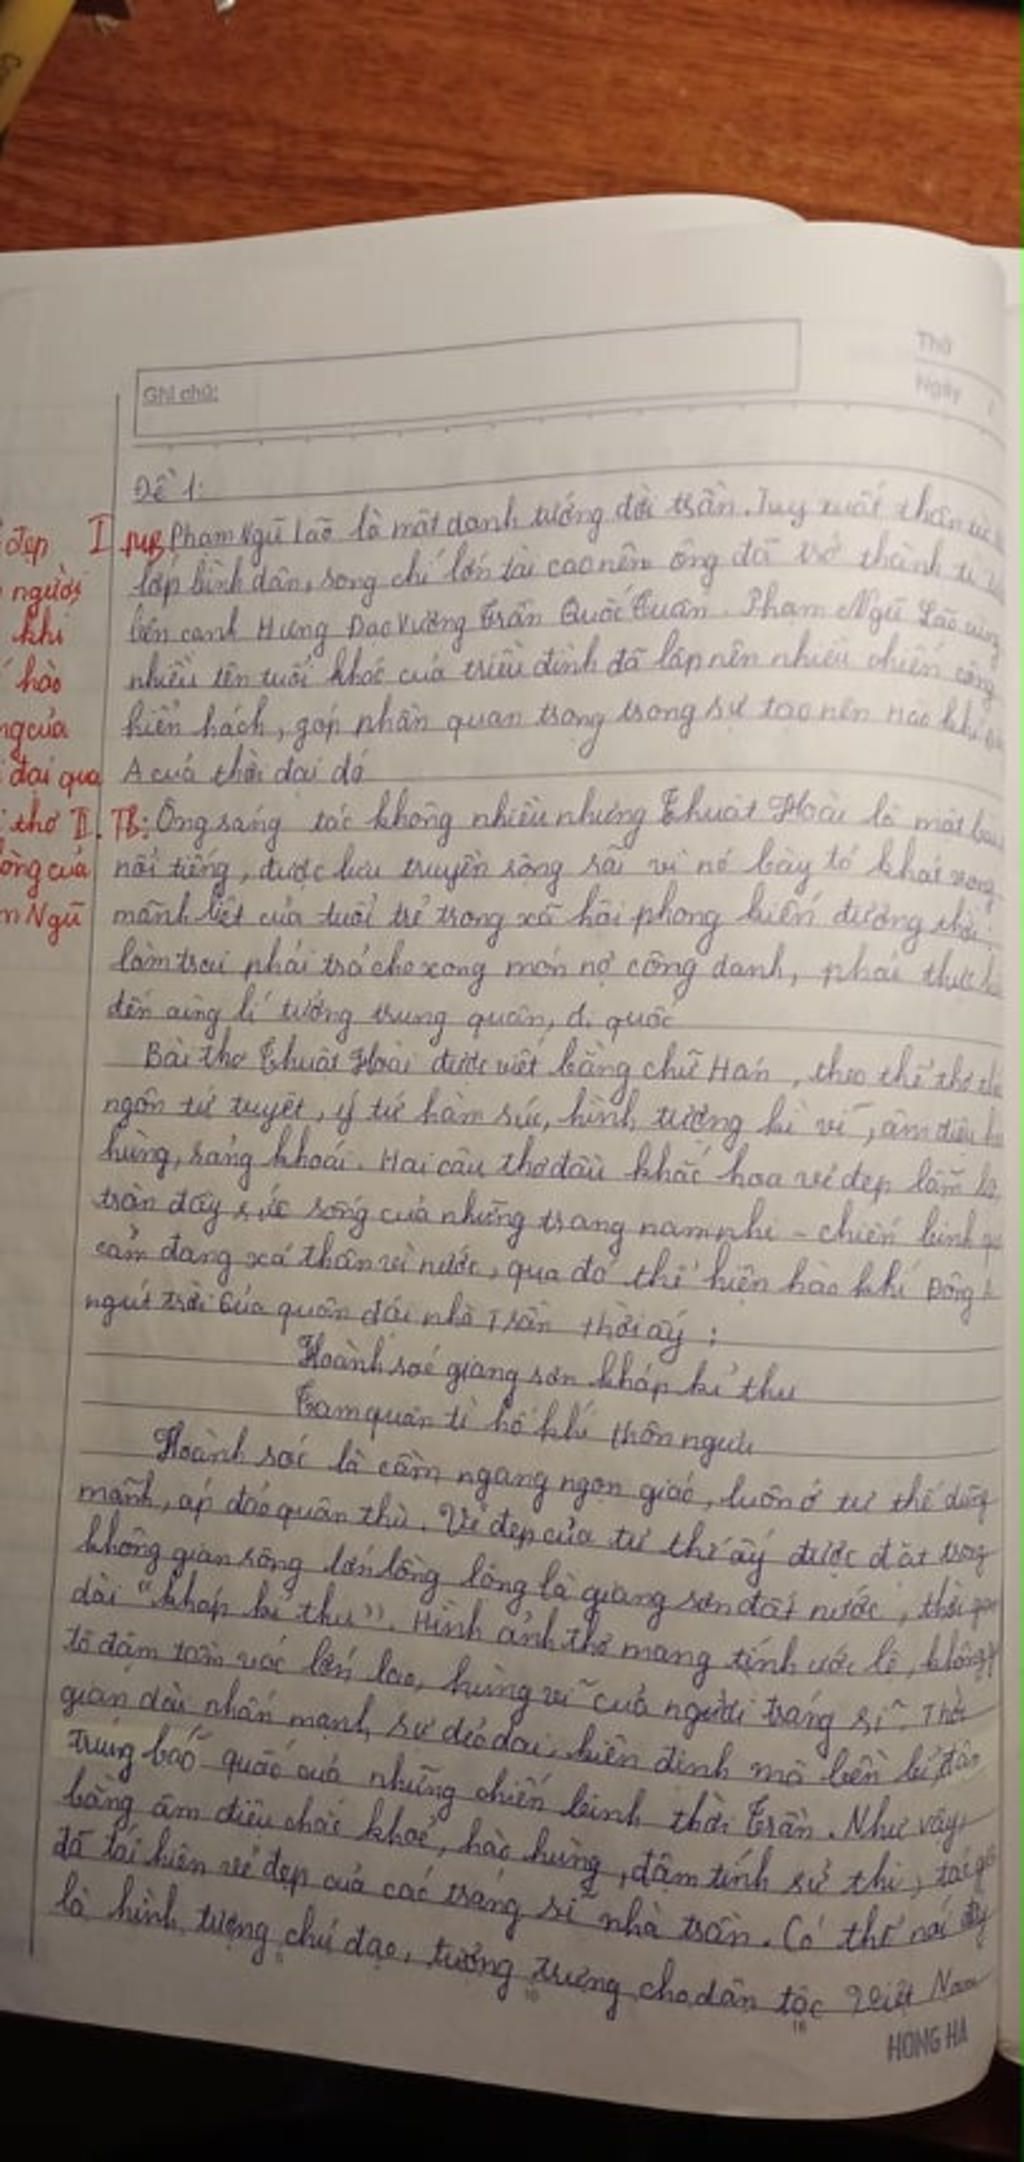 Thứ
Ghi chú:
Ngày
Đề 1:
I MB Phạm Ngũ Lão là một danh tướng đời trần. Tuy xuất thân từ
lớp bình dân, song chí lớn tài cao nên ông đã trở thành
bên cạnh Hưng Đạo Vương Trần Quốc Tuấn. Phạm Ngũ Lão cùng
nhiều tên tuổi khác của triều đình đã lập nên nhiều chiến công
hiển hách, góp phần quan trọng trong sự tạo nên hào khí
A của thời đại đó
II. TB: Ông sáng tác không nhiều nhưng Thuật Hoài là một bài
nổi tiếng, được lưu truyền rộng rãi vì nó bày tỏ khát vọng
mãnh liệt của tuổi trẻ trong xã hội phong kiến đương thời:
làm trai phải trả cho xong món nợ công danh, phải thực
đến cùng lí tưởng trung quân, ái quốc
Bài thơ Thuật Hoài được viết bằng chữ Hán, theo thể thơ
ngôn tứ tuyệt, ý tứ hàm súc, hình tượng kì vĩ, âm điệu
hùng, sảng khoái. Hai câu thơ đầu khắc họa vẻ đẹp lẫm
tràn đầy sức sống của những trang nam nhi - chiến binh
cảm đang xả thân vì nước, qua đó thể hiện hào khí Đông
ngút trời của quân đội nhà Trần thời ấy:
Hoành sóc giang sơn kháp kỉ thu
Tam quân tì hổ khí thôn ngưu
Hoành sóc là cầm ngang ngọn giáo, luôn ở tư thế dũng
mãnh, áp đảo quân thù. Vẻ đẹp của tư thế ấy được đặt trong
không gian rộng lớn lồng lộng là giang sơn đất nước, thời gian
dài "kháp kỉ thu". Hình ảnh thơ mang tính ước lệ, không
tô đậm tầm vóc lớn lao, hùng vĩ của người tráng sĩ. Thời
gian dài nhấn mạnh sự dẻo dai, kiên định mà bền bỉ,
trung báo quốc của những chiến binh thời Trần. Như vậy,
bằng âm điệu chắc khoẻ, hào hùng, đậm tính sử thi, tác giả
đã tái hiện vẻ đẹp của các tráng sĩ nhà trần. Có thể nói đây
là hình tượng chủ đạo, tượng trưng cho dân tộc Việt Nam
đẹp
người
khí
hào
của
đại qua
thơ
của
Ngũ
16
HONG HA